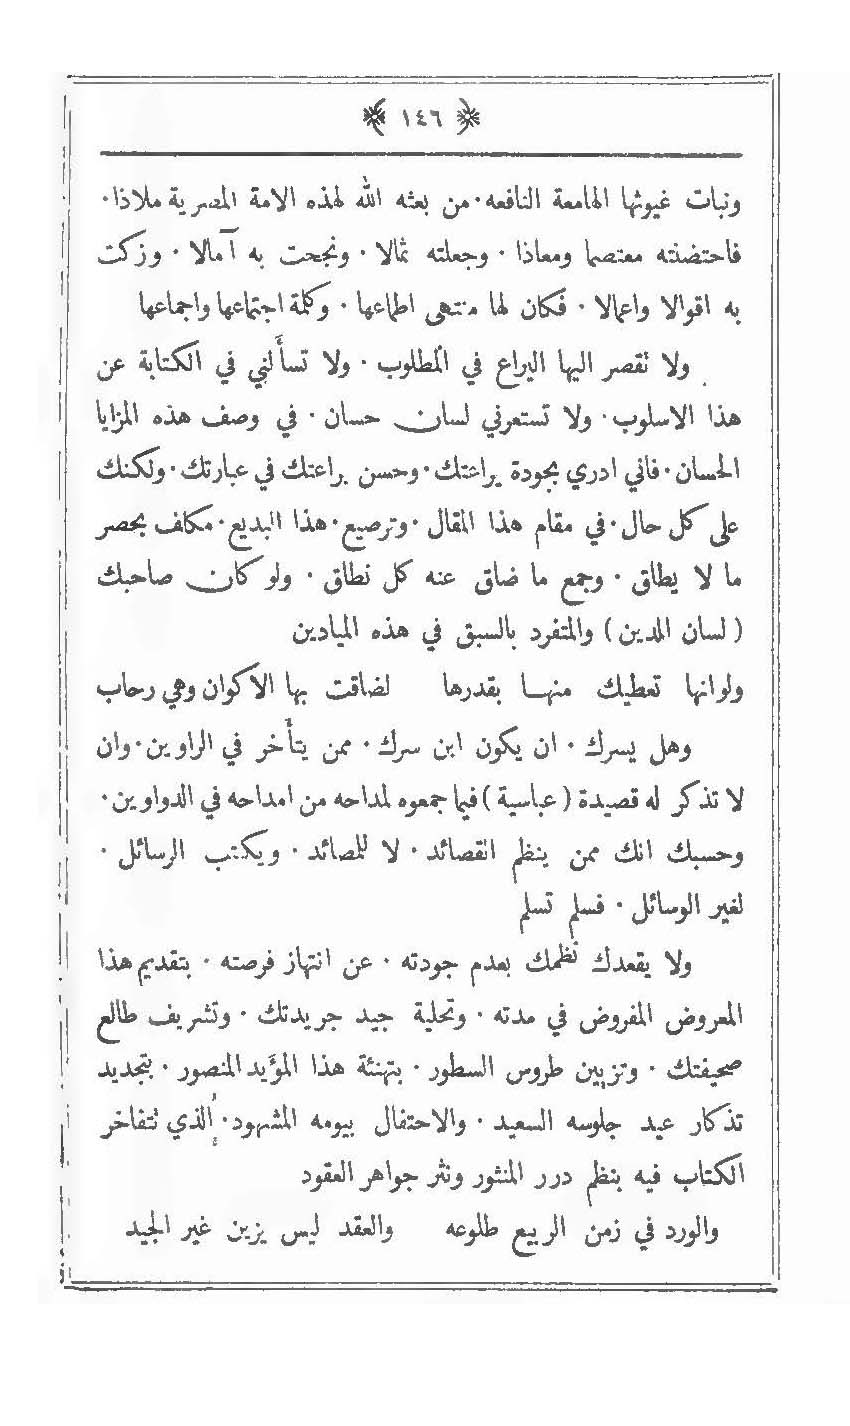 ١٤٦
ونبات غيوثها الهامعة النافعه. من بعثه الله لهذه الامة المصرية ملاذا.
فاحتضنته معتصما ومعاذا. وجعلته ثمالا. ونجحت به آمالا. وزكت
به اقوالا واعمالا. فكان لها منتهى اطماعها. وكلمة اجتماعها واجماعها
ولا تقصر اليها اليراع في المطلوب. ولا تسألني في الكتابة عن
هذا الاسلوب. ولا تستعرني لسان حسان. في وصف هذه المزايا
الحسان. فاني ادري بجودة يراعتك. وحسن براعتك في عبارتك. ولكنك
على كل حال. في مقام هذا المقال. وترصيع. هذا البديع. مكلف بحصر
ما لا يطاق. وجمع ما ضاق عنه كل نطاق. ولو كان صاحبك
(لسان الدين) والمتفرد بالسبق في هذه الميادين
ولوانها تعطيك منها بقدرها لضاقت بها الاكوان وهي رحاب
وهل يسرك. ان يكون ابن سرك. ممن يتأخر في الراوين. وان
لا تذكر له قصيدة (عباسية) فيما جمعوه لمداحه من امداحه في الدواوين.
وحسبك انك ممن ينظم القصائد. لا للمصائد. ويكتب الرسائل.
لغير الوسائل. فسلم تسلم
ولا يقعدك نظمك بعدم جودته. عن انتهاز فرصته. بتقديم هذا
المعروض المفروض في مدته. وتحلية جيد جريدتك. وتشريف طالع
صحيفتك. وتزيين طروس السطور. بتهنئة هذا المؤيد المنصور. بتجديد
تذكار عيد جلوسه السعيد. والاحتفال بيومه المشهود. الذي تتفاخر
الكتاب فيه بنظم درر المنثور ونثر جواهر العقود
والورد في زمن الربيع طلوعه والعقد ليس يزين غير الجيد